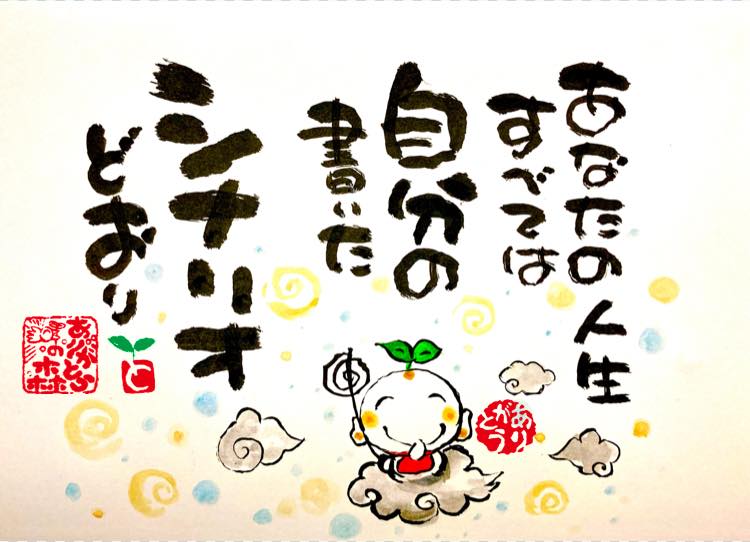 あなたの人生
すべては
自分の
書いた
シナリオ
どおり
ありがとう
の森
ありがとう